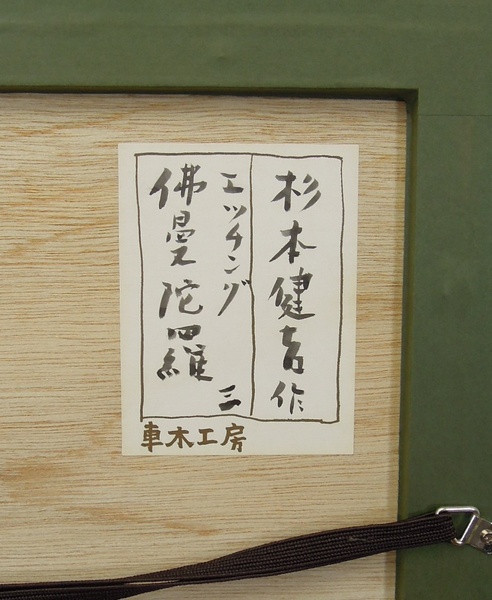 杉本健吉作
エッチング 三
佛曼陀羅
車木工房